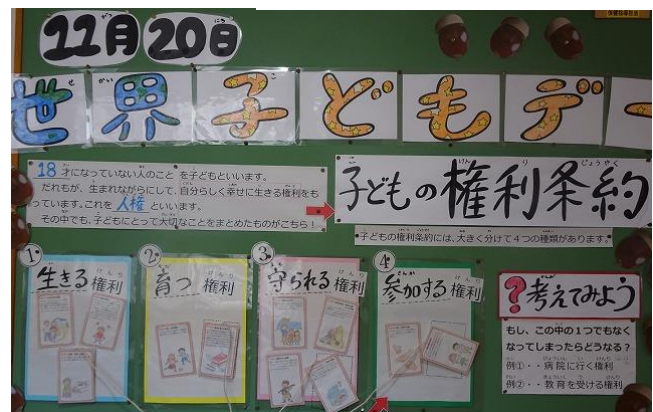 11月20日
世界子どもデー
18才になっていない人のことを子どもといいます。
だれもが、生まれながらにして、自分らしく幸せに生きる権利をも
っています。これを人権といいます。
その中でも、子どもにとって大切なことをまとめたものがこちら！
子どもの権利条約
子どもの権利条約には、大きく分けて4つの種類があります。
1.
生きる権利
2.
育つ権利
3.
守られる権利
4.
参加する権利
?考えてみよう
もし、この中の1つでもなく
なってしまったらどうなる？
例①・・病院に行く権利
例②・・教育を受ける権利